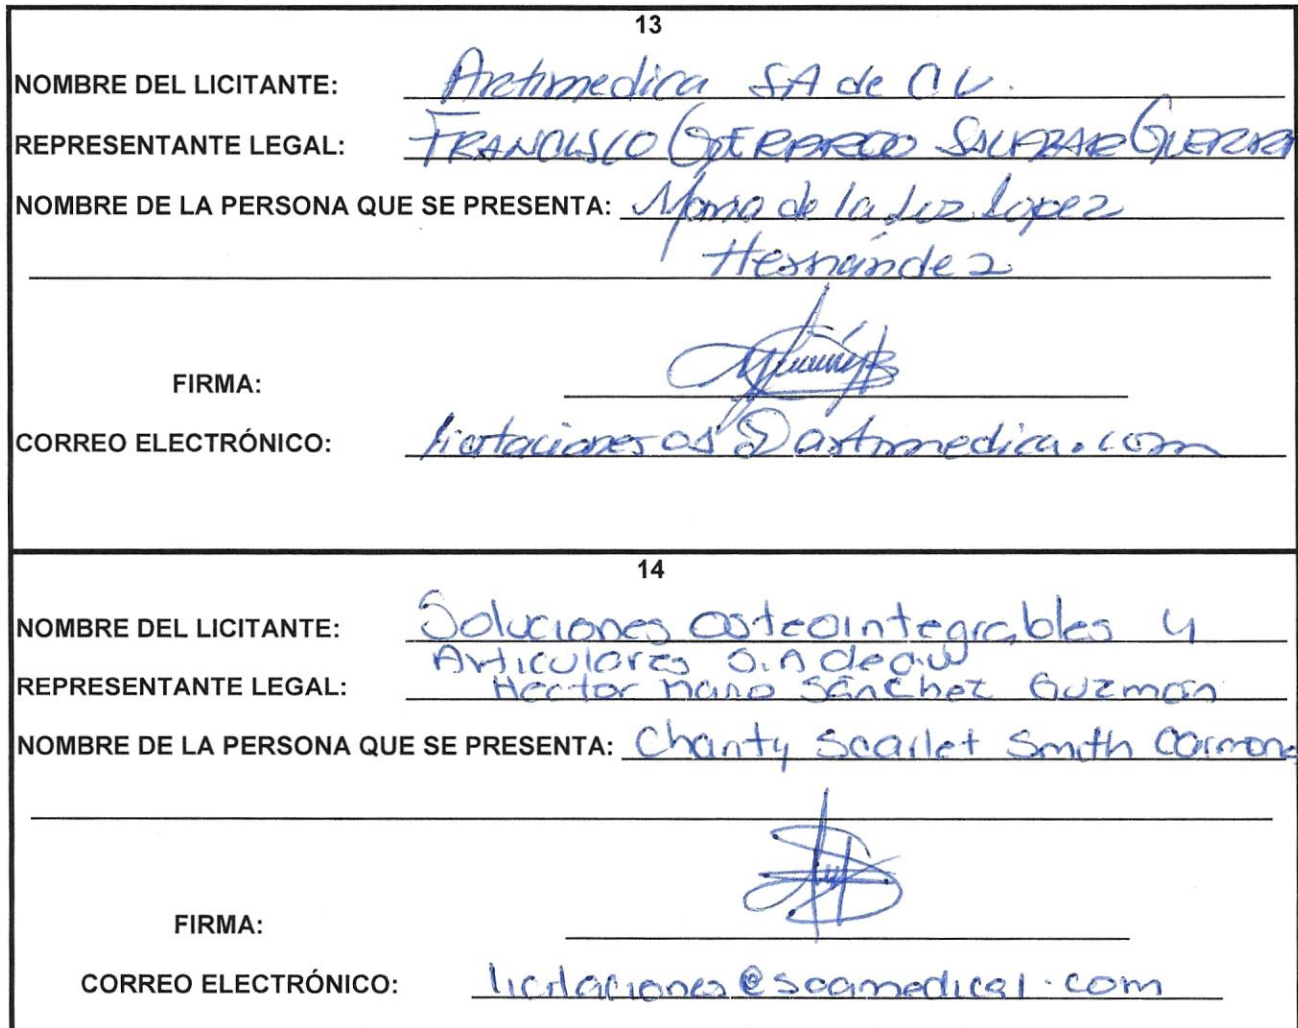 13
NOMBRE DEL LICITANTE: Artimedica SA de CV.
REPRESENTANTE LEGAL: FRANCISCO GERARDO SALAZAR GUERRA
NOMBRE DE LA PERSONA QUE SE PRESENTA: Maria de la Luz Lopez
Hernández
FIRMA:
CORREO ELECTRÓNICO: @artimedica.com
14
NOMBRE DEL LICITANTE: Soluciones osteointegrables y
Articulares S.A de C.V
REPRESENTANTE LEGAL: Hector Mario Sánchez Guzmán
NOMBRE DE LA PERSONA QUE SE PRESENTA: Chanty Scarlet Smith Carmona
FIRMA:
CORREO ELECTRÓNICO: licitaciones@soamedical.com